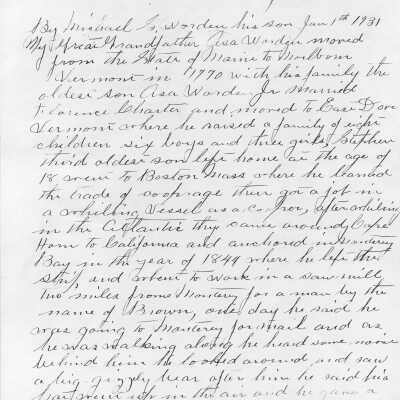 By Michael G. Worden his son Jan 1th 1931
My Great Grandfather Asa Worden moved
from the State of Maine to
Vermont in 1790 with his family the
oldest son Asa Worden Jr married
Florence Charter and moved to East Dover
Vermont where he raised a family of eight
children six boys and three girls, Stephen
third oldest son left home at the age of
18 went to Boston Mass where he learned
the trade of cooperage then got a job in
a whiling vessel as a cooper, after whiling
in the Atlantic they came around Cape
Horn to California and anchored in Monterey
Bay in the year of 1849 where he left the
ship, and went to work in a saw mill,
two miles from Monterey for a man by the
name of Brown, one day he said he
was going to Monterey for mail and as
he was walking along he heard some noise
behind him he looked around and saw
a big grizzly bear after him he said his
hair went up in the air and he gave a